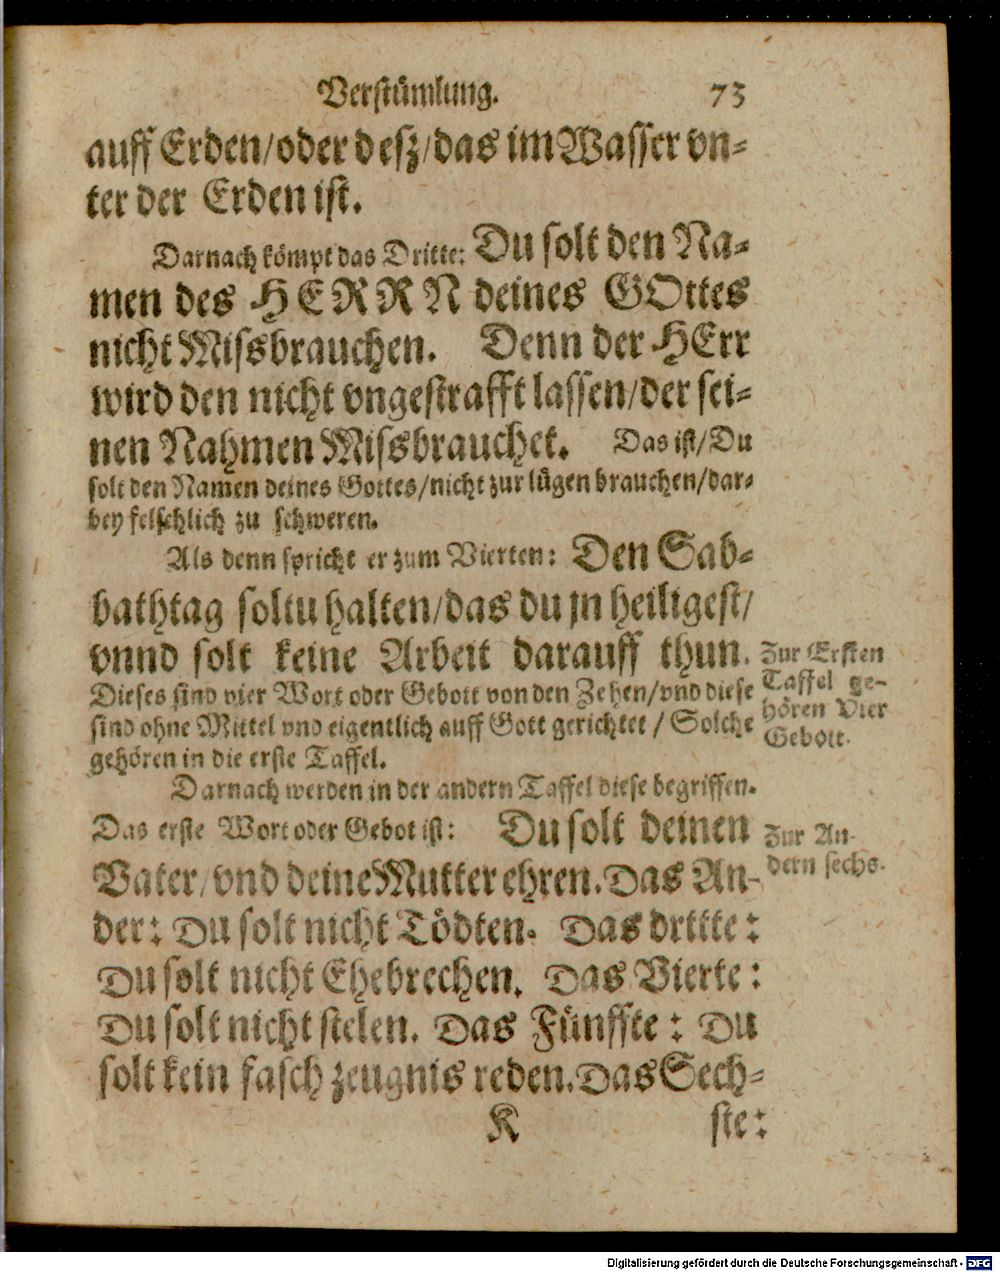 Verstümlung. 73
auff Erden/oder desz/das im Wasser vn-
ter der Erden ist.
Darnach kömpt das Dritte: Du solt den Na-
men des HERRN deines GOttes
nicht Missbrauchen. Denn der HErr
wird den nicht vngestrafft lassen/der sei-
nen Nahmen Missbrauchet. Das ist/Du
solt den Namen deines Gottes/nicht zur lügen brauchen/dar-
bey felschlich zu schweren.
Als denn spricht er zum Vierten: Den Sab-
bathtag soltu halten/das du jn heiligest/
vnnd solt keine Arbeit darauff thun.
Dieses sind vier Wort oder Gebott von den Zehen/vnd diese
sind ohne Mittel vnd eigentlich auff Gott gerichtet / Solche
gehören in die erste Taffel.
Zur Ersten
Taffel ge-
hören Vier
Gebott.
Darnach werden in der andern Taffel diese begriffen.
Das erste Wort oder Gebot ist: Du solt deinen
Vater/vnd deine Mutter ehren. Das An-
der: Du solt nicht Tödten. Das dritte:
Du solt nicht Ehebrechen. Das Vierte:
Du solt nicht stelen. Das Fünffte: Du
solt kein fasch zeugnis reden. Das Sech-
Zur An-
dern sechs.
K ste:
Digitalisierung gefördert durch die Deutsche Forschungsgemeinschaft - DFG